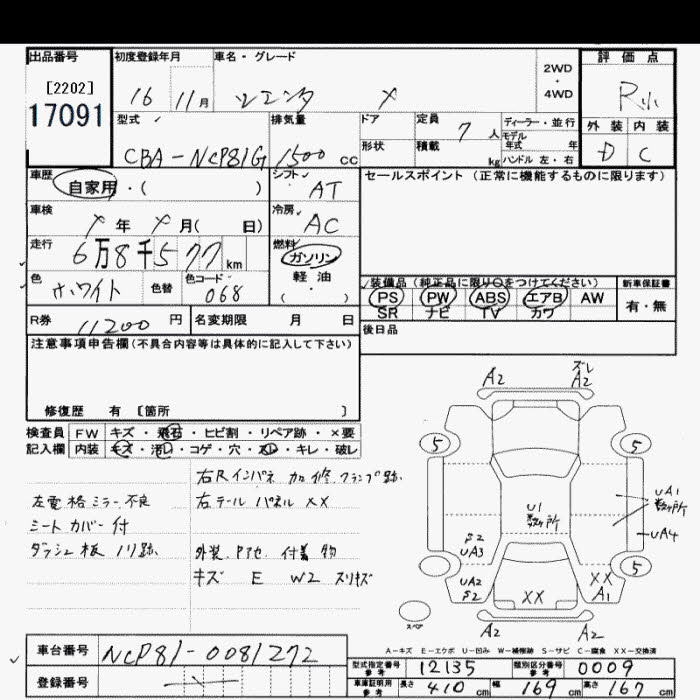 出品番号 初度登録年月 車名・グレード 評価点
[2202] 2WD・4WD
17091 16 11月 シエンタ X R小
型式 排気量 ドア 定員 7 人 ディーラー・並行 外装 内装
モデル年式 年
CBA-NCP81G 1500 cc 形状 積載 kg ハンドル 左・右 D C
車歴 自家用・( ) シフト AT セールスポイント (正常に機能するものに限ります)
車検 X 年 X 月( 日) 冷房 AC
走行 6万8千577 km 燃料 ガソリン
軽・油
( ・ )
色 ホワイト 色替 色コード 068 装備品 (純正品に限り○をつけてください) 新車保証書
PS PW ABS エアB AW 有・無
SR ナビ TV カワ
R券 11200 円 名変期限 月 日 後日品
注意事項申告欄(不具合内容等は具体的に記入して下さい)
修復歴 有 [箇所 ]
検査員 FW キズ・飛石・ヒビ割・リペア跡・×要
記入欄 内装 キズ・汚れ・コゲ・穴・スレ・キレ・破レ
右Rインパネ 加修 クランプ跡
左電格ミラー不良 右テールパネル XX
シートカバー付
ダッシュ板 ノリ跡 外装 P7他 付着物
キズ E W2 スリキズ
A2 ズレ
A2
5 5
U1
数ヶ所
UA1
数ヶ所
UA4
S2
UA3
UA2
S2
XX
XX
A1
5
スペア
A2 A2
A-キズ E-エクボ U-凹み W-補修跡 S-サビ C-腐食 XX-交換済
車台番号 NCP81-0081272
型式指定番号 参考 12135 類別区分番号 参考 0009
登録番号
車庫証明用 参考 長さ 410 cm 幅 169 cm 高さ 167 cm